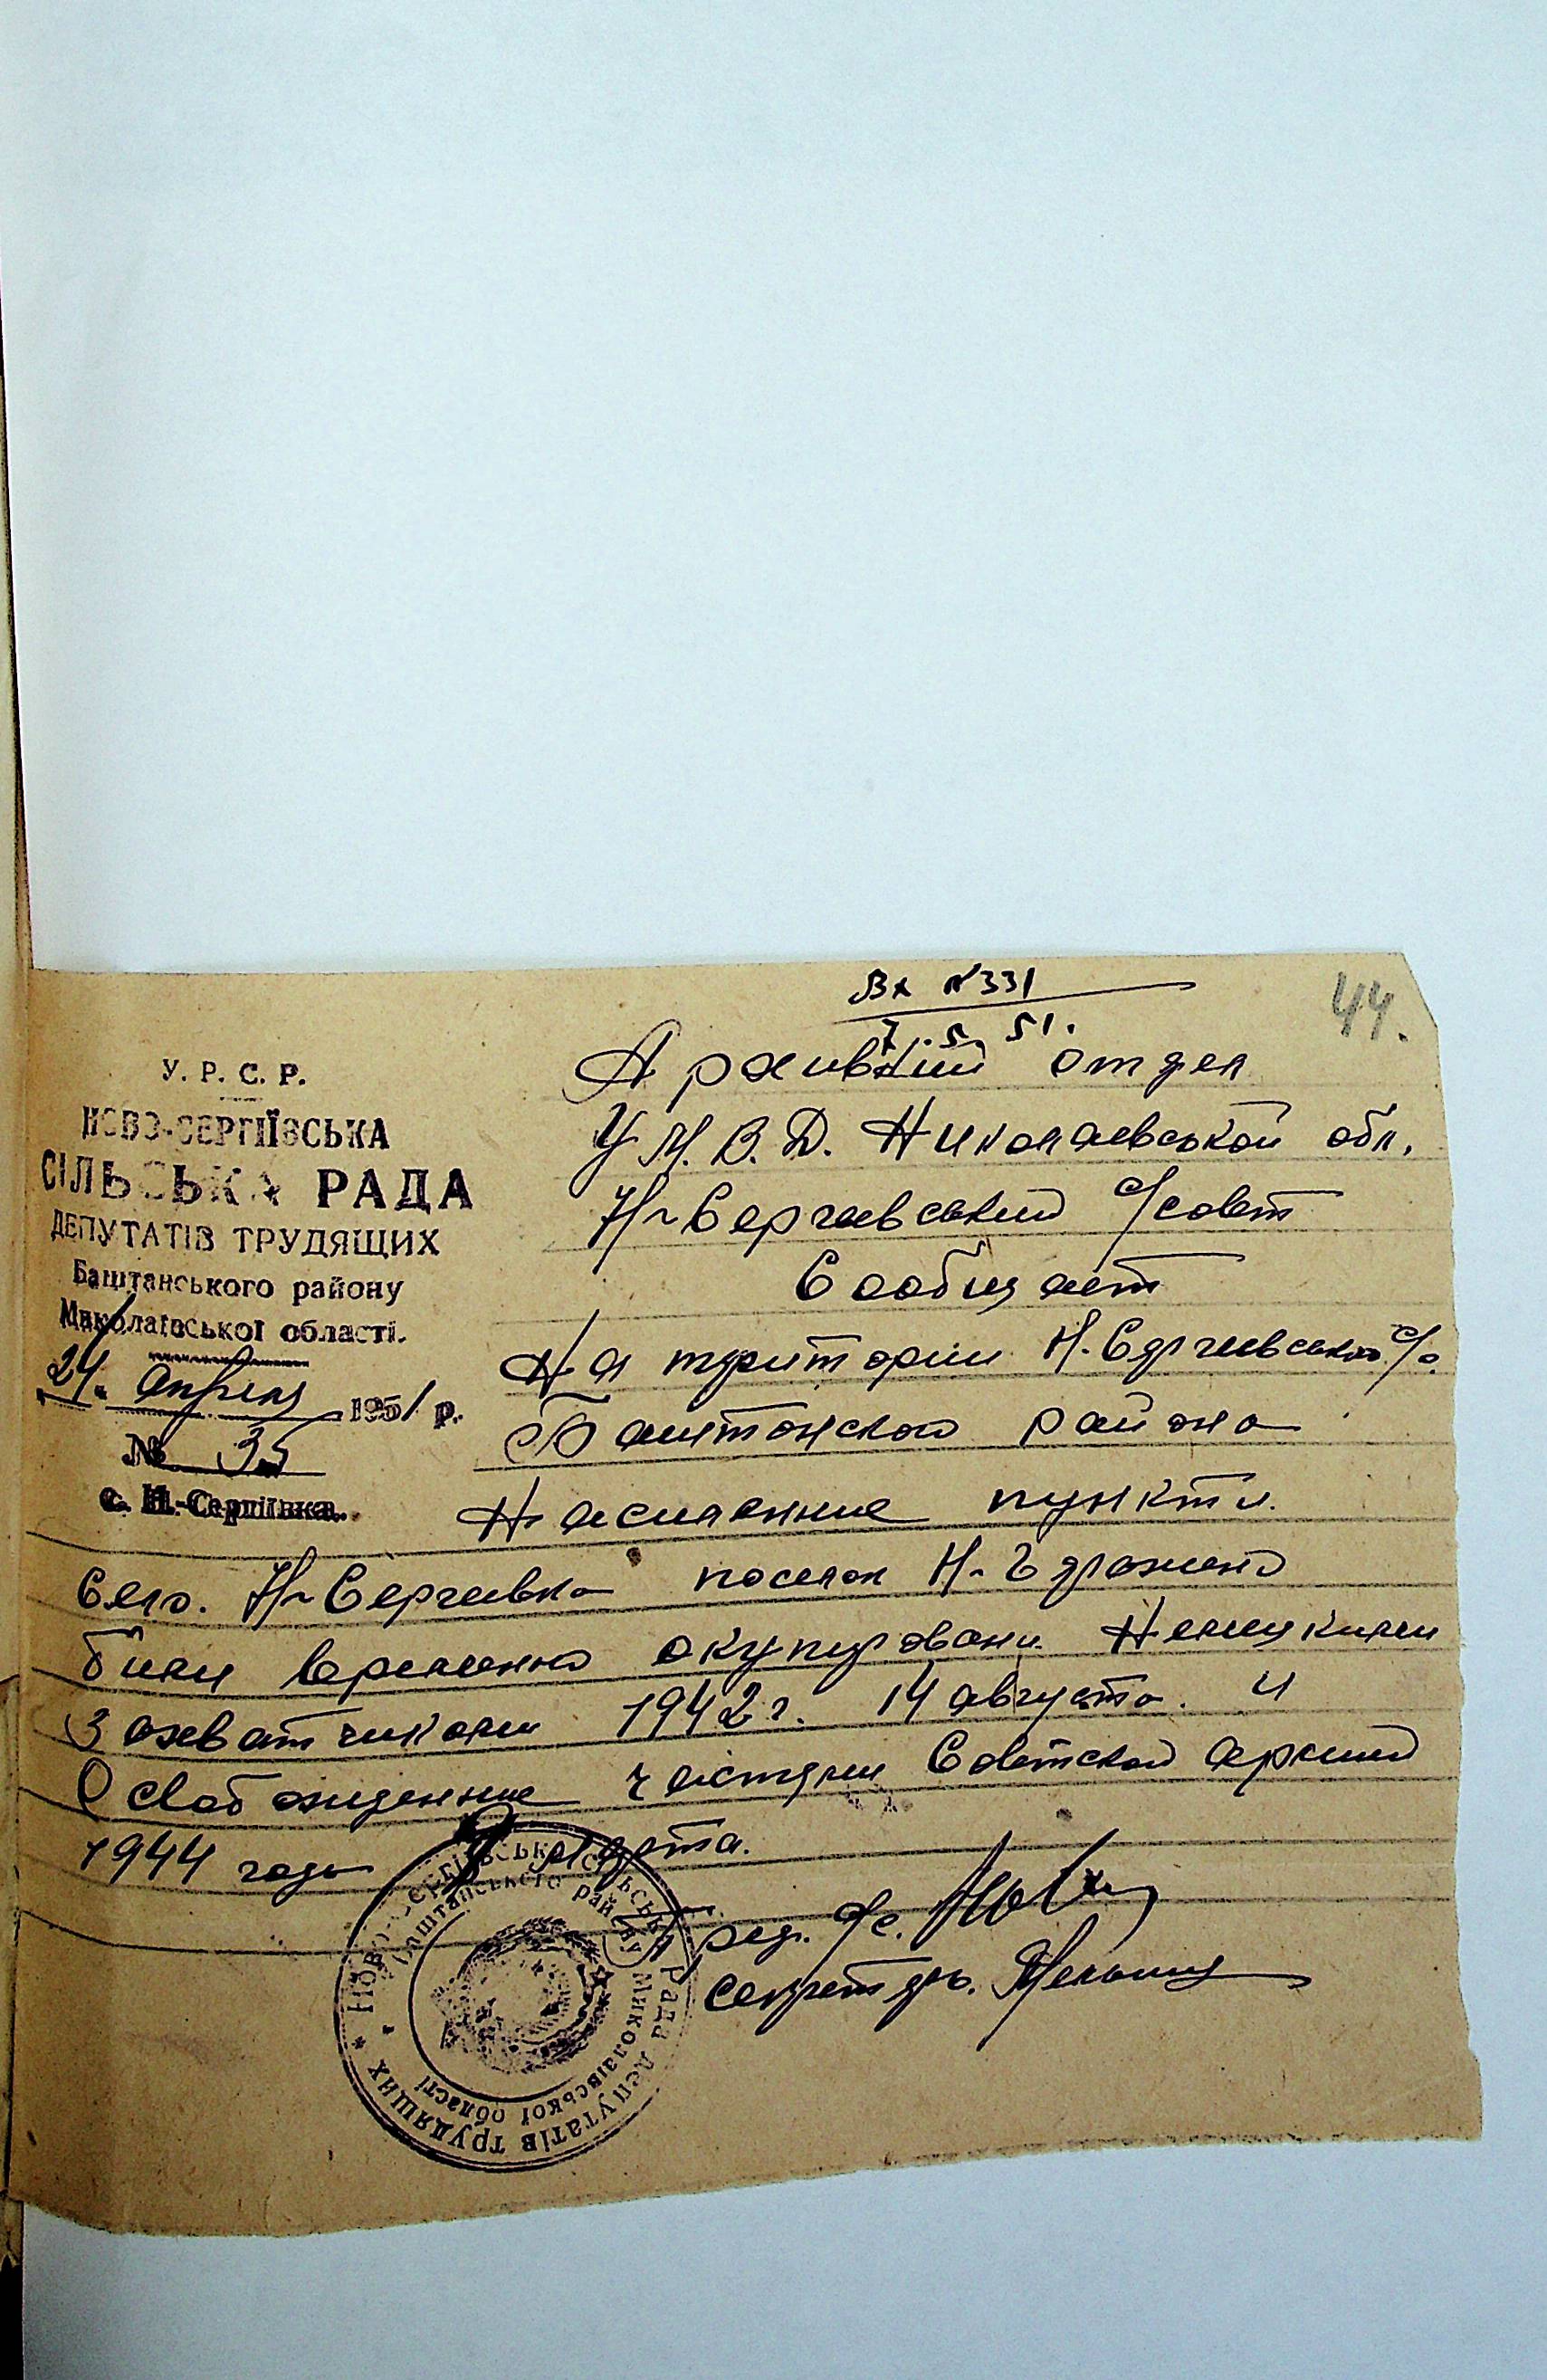 Вх №331
7. 5. 51.
44.
У. Р. С. Р.
НОВО-СЕРГІЇВСЬКА
СІЛЬСЬКА РАДА
ДЕПУТАТІВ ТРУДЯЩИХ
Баштанського району
Миколаївської області.
24 апреля 1951 р.
№ 35
с. Н.-Сергіївка.
Архивний отдел
У М. В. Д. Николаевськой обл.
Н-Сергеевський с/совет
Сообщает
На територии Н. Сергеевського с/с.
Баштанской района
Насиленние пункти.
Село. Н-Сергеевка поселок Н-
били временно окупировани Немецкими
Захватчиками 1942 г. 14 августа. и
Освобожиденние частями Советской армией
1944 года 9 марта.
Пред. с/с.
секретарь.
* Ново-Сергіївська сільська Рада депутатів трудящих
* Баштанського району Миколаївської області